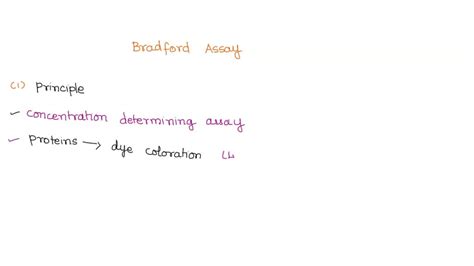 Bradford Assay
(1) Principle
✓ concentration determining assay
✓ Proteins → dye coloration (